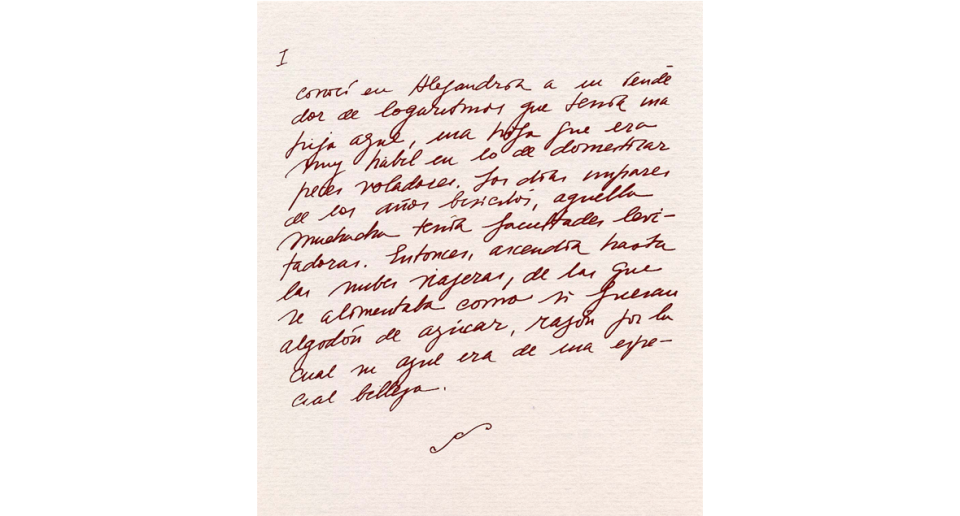 I
conocí en Alejandría a un vende
dor de logaritmos que tenía una
hija azul, una hija que era
muy hábil en lo de domesticar
peces voladores. Los días impares
de los años bisiestos, aquella
muchacha tenía facultades levi-
tadoras. Entonces, ascendía hasta
las nubes viajeras, de las que
se alimentaba como si fueran
algodón de azúcar, razón por la
cual su azul era de una espe-
cial belleza.